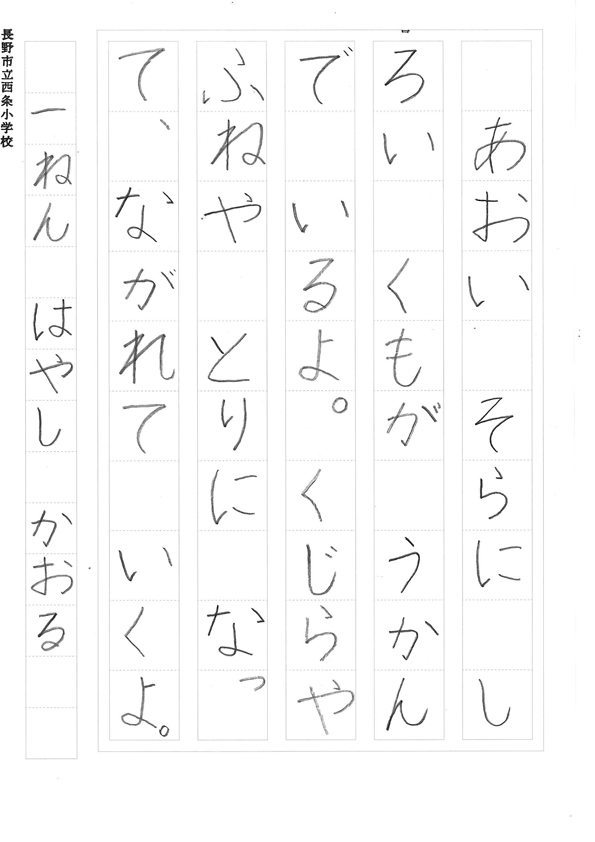 あおい　そらに　し
ろい　くもが　うかん
で　いるよ。くじらや
ふねや　とりに　なっ
て、ながれて　いくよ。
一ねん　はやし　かおる
長野市立西条小学校